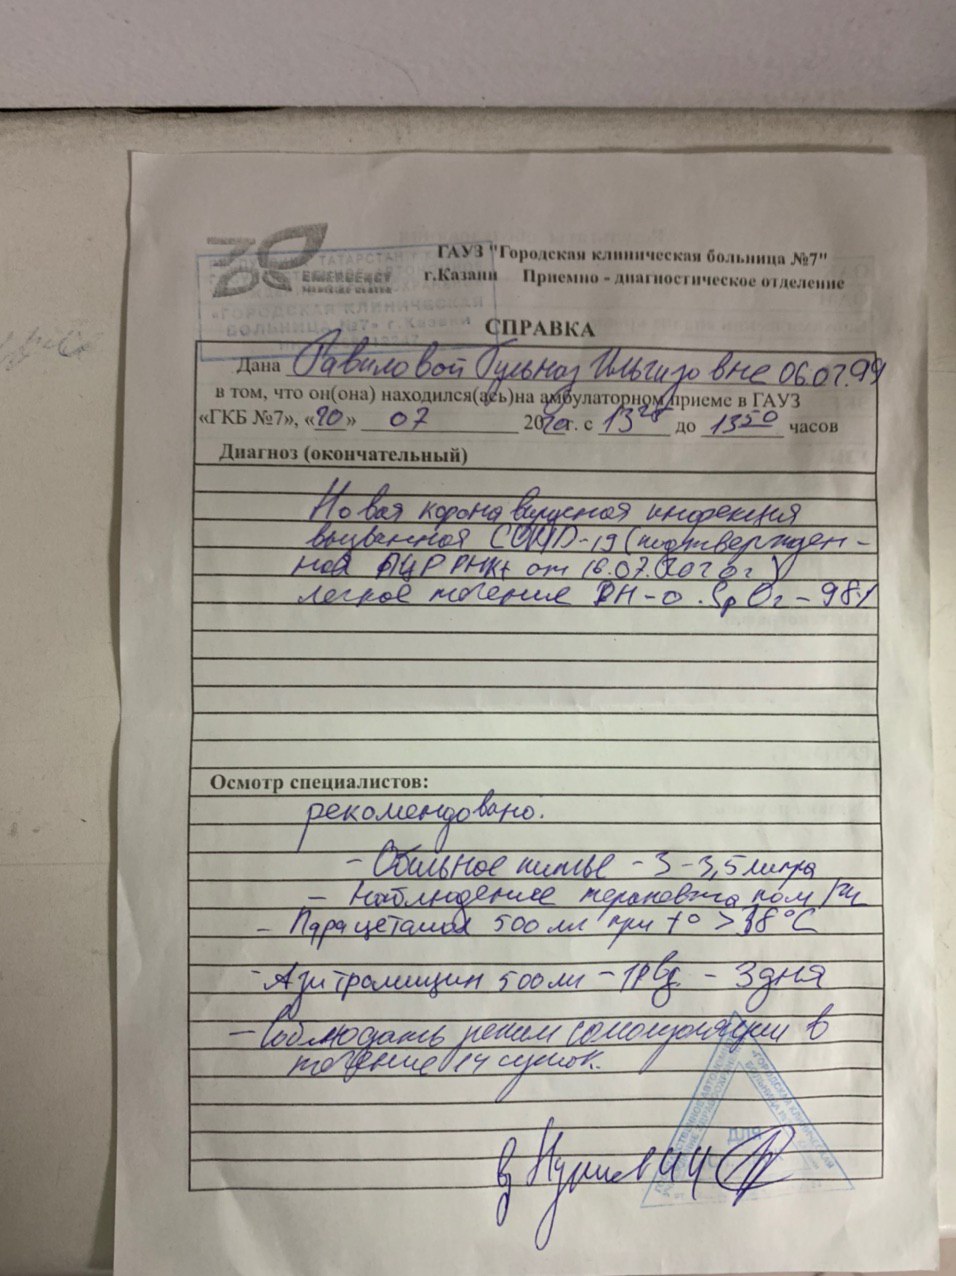 EMERGENCY
ГАУЗ "Городская клиническая больница №7"
г.Казани Приемно - диагностическое отделение
«ГОРОДСКАЯ КЛИНИЧЕСКАЯ
БОЛЬНИЦА №7» г. Казани
СПРАВКА
Дана Равиловой Гульназ Ильгизовне 06.07.99
в том, что он(она) находился(ась)на амбулаторном приеме в ГАУЗ
«ГКБ №7», «20» 07 2020г. с 13 до 13 50 часов
Диагноз (окончательный)
Новая коронавирусная инфекция
вызванная COVID-19 (подтвержден-
ная ПЦР РНК+ от 16.07.2020г)
легкое течение ДН-0. SpO2 - 98%
Осмотр специалистов:
рекомендовано:
- Обильное питье - 3-3,5 литра
- Наблюдение терапевта по м/ж
- Парацетамол 500 мг при t° > 38°C
- Азитромицин 500 мг - 1р в д. - 3 дня
- Соблюдать режим самоизоляции в
течение 14 суток.
ДЛЯ